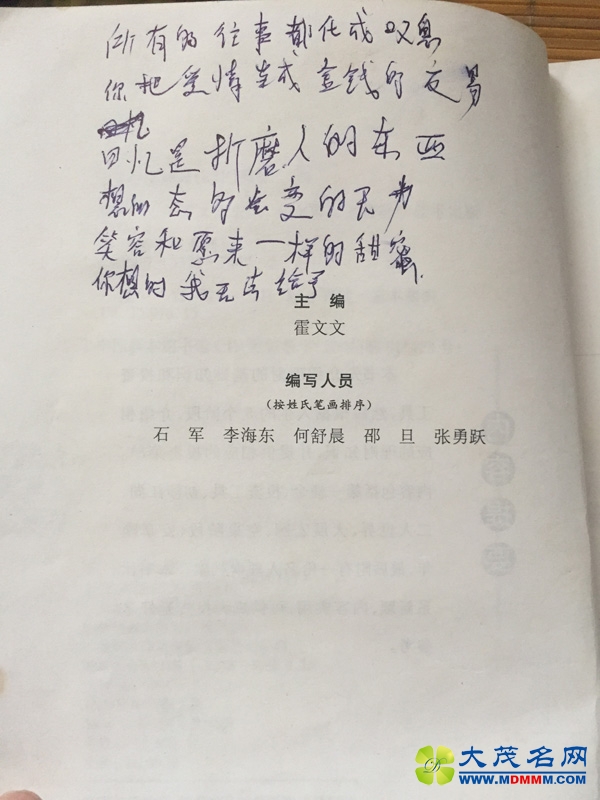 所有的往事都化成叹息
你把爱情当成金钱的交易
回忆是折磨人的东西
的会变的无力
笑容和原来一样的甜蜜
你想的我无法给予
主 编
霍文文
编写人员
(按姓氏笔画排序)
石 军 李海东 何舒晨 邵 旦 张勇跃
大茂名网
WWW.MDMMM.COM